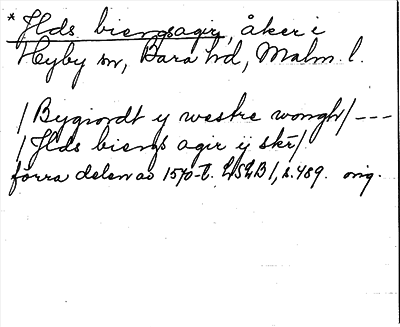 * Ilds biengsagir, åker i
Hyby sn, Bara hd, Malm. l.
/Bygiordt y westre wongh/ ---
/Ilds biengs agir ij skr/
förra delen av 1570-t. LSLB 1, s. 489. orig.